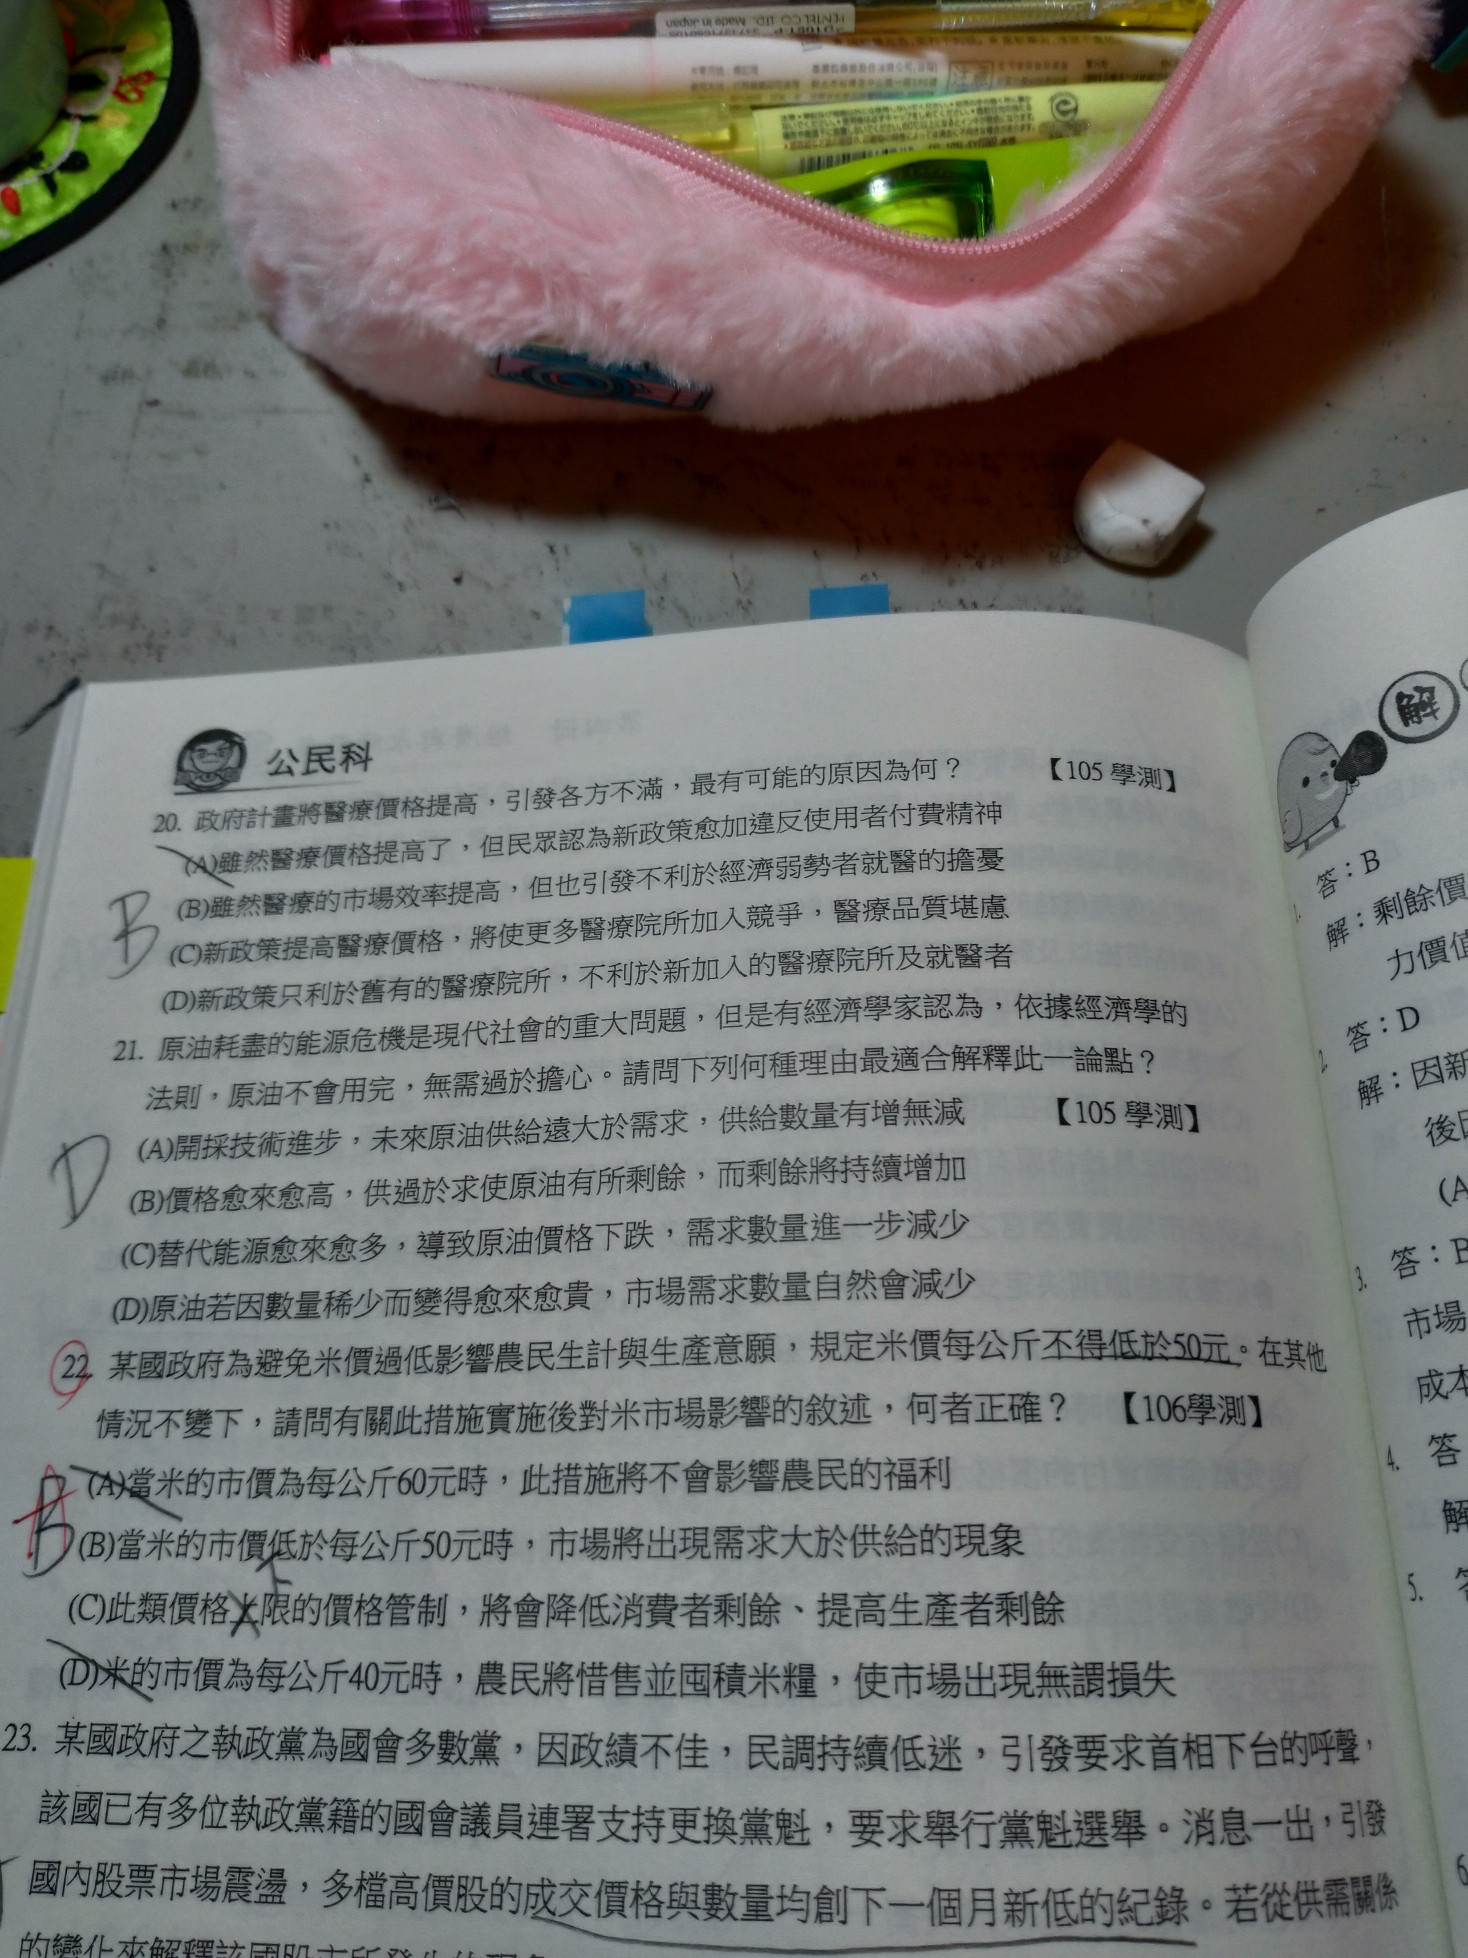 Made in Japan
PENTEL CO., LTD.
公民科
20. 政府計畫將醫療價格提高，引發各方不滿，最有可能的原因為何？ 【105 學測】
(A)雖然醫療價格提高了，但民眾認為新政策愈加違反使用者付費精神
(B)雖然醫療的市場效率提高，但也引發不利於經濟弱勢者就醫的擔憂
B
(C)新政策提高醫療價格，將使更多醫療院所加入競爭，醫療品質堪慮
(D)新政策只利於舊有的醫療院所，不利於新加入的醫療院所及就醫者
21. 原油耗盡的能源危機是現代社會的重大問題，但是有經濟學家認為，依據經濟學的
法則，原油不會用完，無需過於擔心。請問下列何種理由最適合解釋此一論點？
(A)開採技術進步，未來原油供給遠大於需求，供給數量有增無減 【105 學測】
D
(B)價格愈來愈高，供過於求使原油有所剩餘，而剩餘將持續增加
(C)替代能源愈來愈多，導致原油價格下跌，需求數量進一步減少
(D)原油若因數量稀少而變得愈來愈貴，市場需求數量自然會減少
22. 某國政府為避免米價過低影響農民生計與生產意願，規定米價每公斤不得低於50元。在其他
情況不變下，請問有關此措施實施後對米市場影響的敘述，何者正確？ 【106學測】
(A)當米的市價為每公斤60元時，此措施將不會影響農民的福利
B
A
(B)當米的市價低於每公斤50元時，市場將出現需求大於供給的現象
下
(C)此類價格上限的價格管制，將會降低消費者剩餘、提高生產者剩餘
(D)米的市價為每公斤40元時，農民將惜售並囤積米糧，使市場出現無謂損失
23. 某國政府之執政黨為國會多數黨，因政績不佳，民調持續低迷，引發要求首相下台的呼聲，
該國已有多位執政黨籍的國會議員連署支持更換黨魁，要求舉行黨魁選舉。消息一出，引發
國內股票市場震盪，多檔高價股的成交價格與數量均創下一個月新低的紀錄。若從供需關係
的變化來解釋該國股市所發生的現象
1. 答：B
解：剩餘價
力價值
2. 答：D
解：因新
後
(A
3. 答：B
市場
成本
4. 答
解
5. 答
6